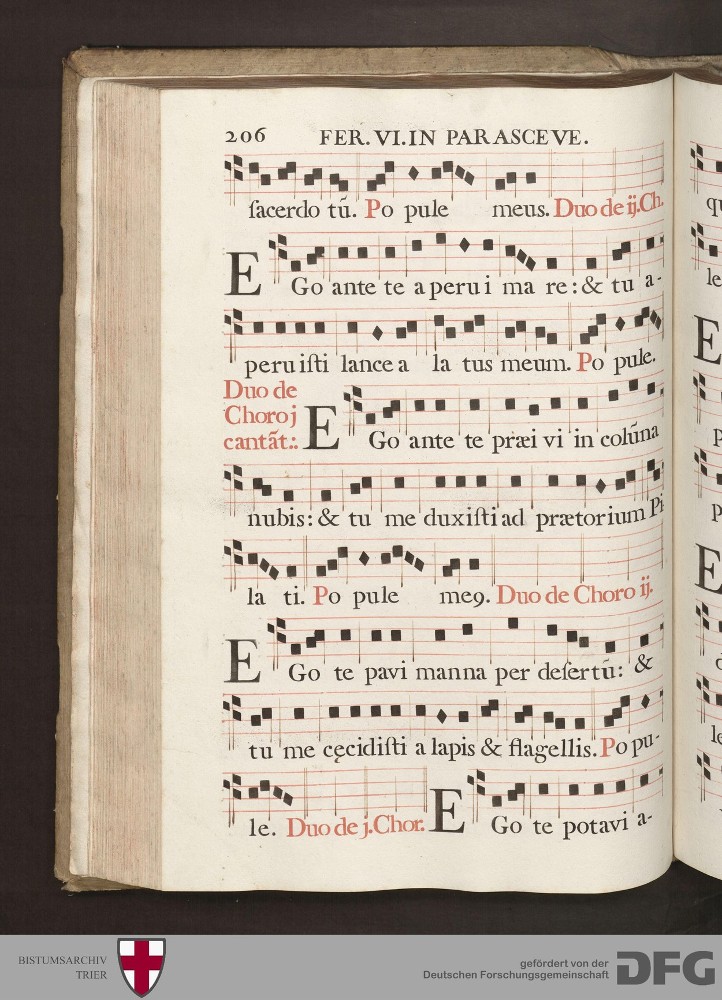 206 FER. VI. IN PARASCEVE.
sacerdo tũ. Po pule meus. Duo de ij. Ch.
EGo ante te aperui ma re: & tu a-
peruisti lancea la tus meum. Po pule.
Duo de
Choro j
cantãt:. EGo ante te præi vi in colũna
nubis: & tu me duxisti ad prætorium Pi
la ti. Po pule me9. Duo de Choro ij.
EGo te pavi manna per desertũ: &
tu me cęcidisti alapis & flagellis. Po pu-
le. Duo de j. Chor. EGo te potavi a-
qu
le
E
p
p
E
d
le
BISTUMSARCHIV
TRIER
gefördert von der
Deutschen Forschungsgemeinschaft
DFG